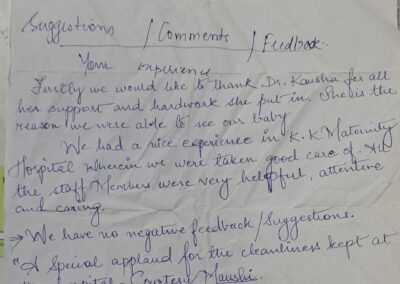 Suggestions / Comments / Feedback.
Your experience
Firstly we would like to thank Dr. Kausha for all
her support and hardwork she put in. She is the
reason we were able to see our baby
We had a nice experience in K.K Maternity
Hospital wherein we were taken good care of. All
the staff Members were very helpful, attentive
and caring.
→ We have no negative feedback/Suggestions.
"A Special applaud for the cleanliness kept at
hospital - Courtesy Maushi.